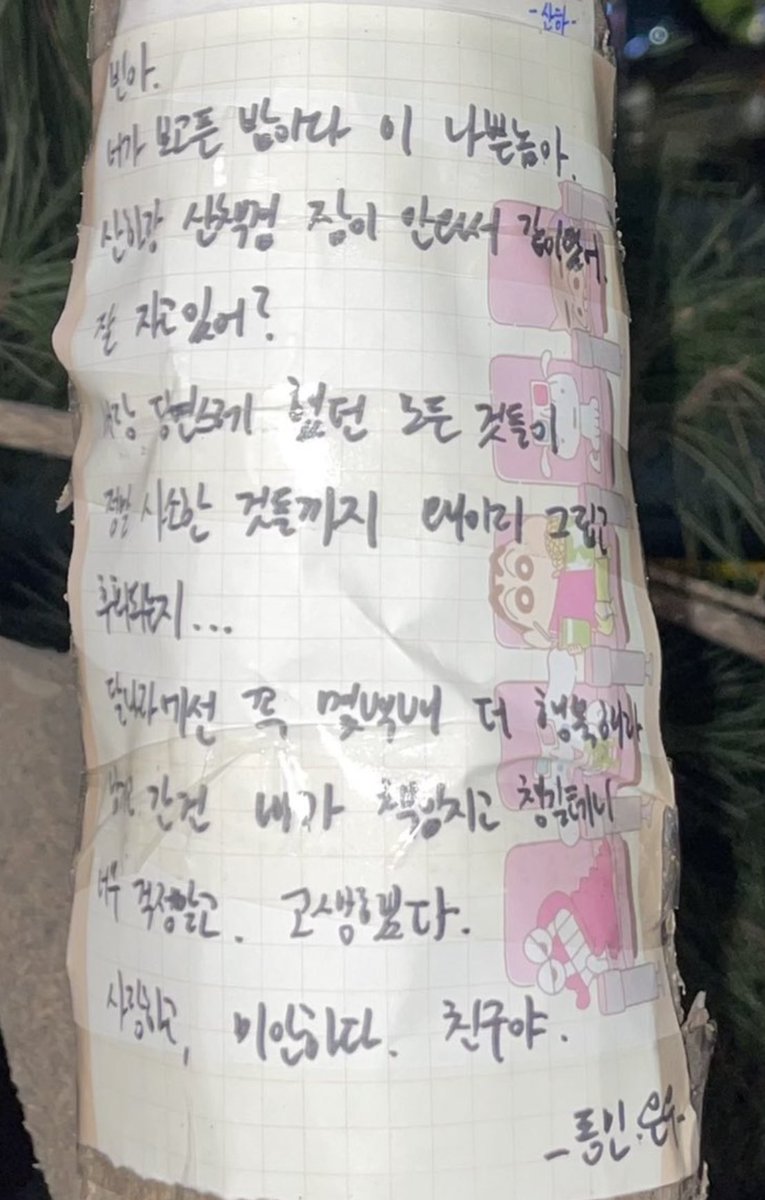 -산하-
빈아.
너가 보고픈 밤이다 이 나쁜놈아.
산하랑 산책겸 잠이 안와서 같이왔어.
잘 자고있어?
당연스레 했던 모든 것들이
정말 사소한 것들까지 왜이리 그립고
후회되는지...
달나라에선 꼭 몇백배 더 행복해라
간건 내가 책임지고 챙길테니
너무 걱정말고. 고생했다.
사랑하고, 미안하다. 친구야.